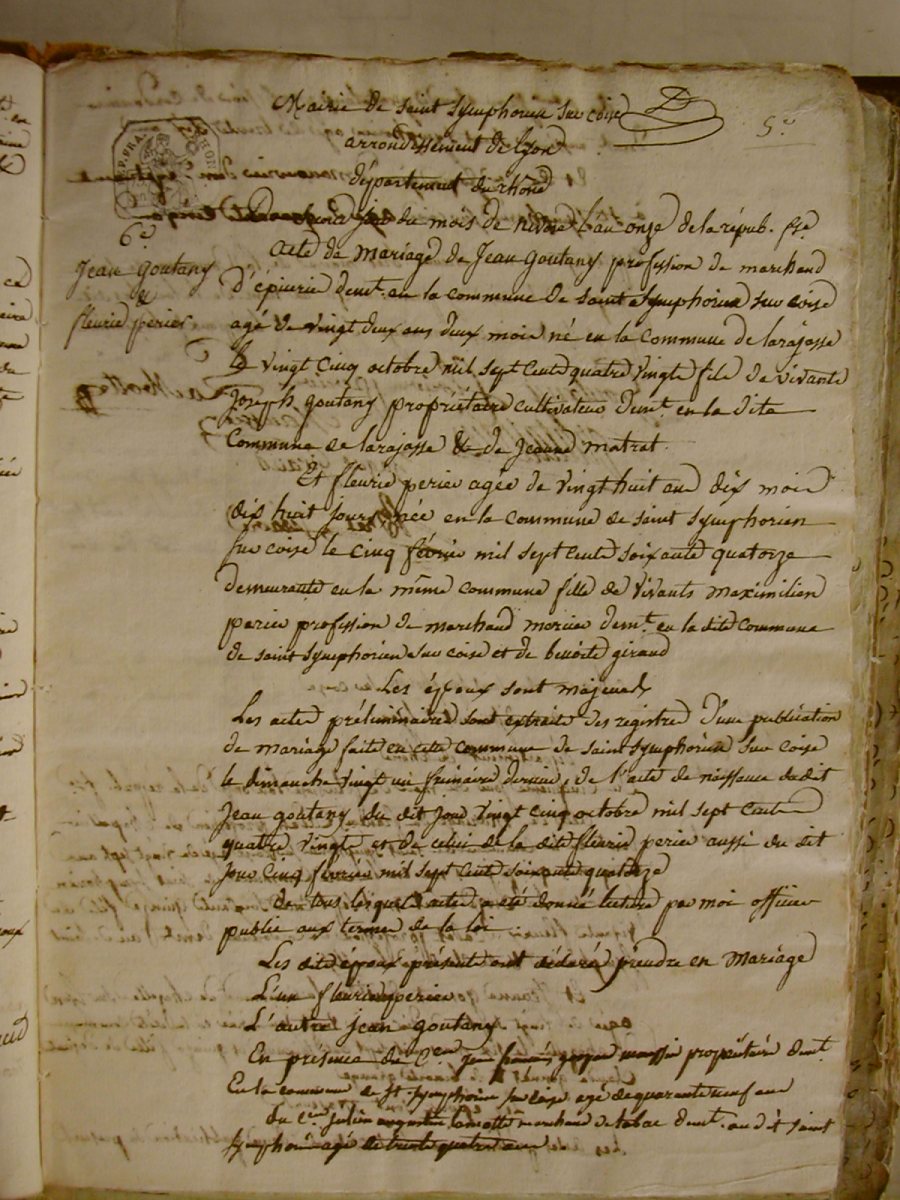 Mairie de saint symphorien sur coise
5e
arrondissement de Lyon
département du rhône
du mois de nivose l'an onze de la répub. fse
6e
acte de mariage de Jean Goutany profession de marchand
Jean Goutany
&
fleurie perier
D'épicerie demt. en la commune de saint symphorien sur coise
agé de vingt deux ans deux mois né en la commune de larajasse
le vingt cinq octobre mil sept cent quatre vingts fils de vivants
Joseph Goutany propriétaire cultivateur demt. en la dite
Commune de larajasse & de Jeanne matrat
Et fleurie perier agée de vingt huit ans dix mois
dix huit jours née en la commune de saint symphorien
sur coise le cinq février mil sept cents soixante quatorze
demeurante en la même commune fille de vivants maximilien
perier profission de marchand mercier demt. en la dite commune
de saint symphorien sur coise et de benoite giraud
Les époux sont majeurs
Les actes préliminaires sont extraits des registres d'une publication
de mariage faite en cette commune de saint symphorien sur coise
le dimanche vingt un frimaire dernier, de l'acte de naissance du dit
Jean goutany du dit jour vingt cinq octobre mil sept cent
quatre vingts et de celui de la dite fleurie perier aussi du dit
jour cinq février mil sept cent soixante quatorze
de tous lesquels actes a été donné lecture par moi officier
public aux termes de la loi
Les dits époux présents ont déclaré prendre en mariage
L'un fleurie perier
L'autre jean goutany
En présence de Cen jean françois propriétaire demt.
En la commune de St. symphorien sur coise agé de quarante neuf ans
du cen julien augustin marchand de tabac demt. au dit saint
symphorien agé de trente quatre ans